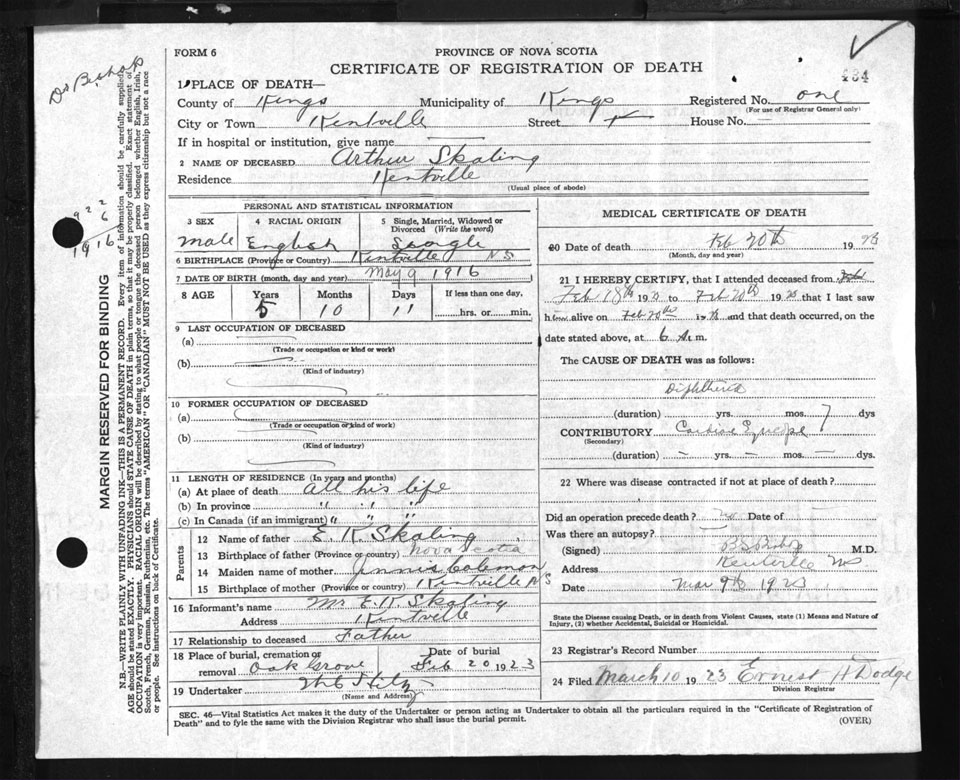 FORM 6
PROVINCE OF NOVA SCOTIA
CERTIFICATE OF REGISTRATION OF DEATH
434
Dr Bishop
1 PLACE OF DEATH—
County of Kings Municipality of Kings Registered No. one
(For use of Registrar General only)
City or Town Kentville Street House No.
If in hospital or institution, give name
2 NAME OF DECEASED Arthur Skaling
Residence Kentville
(Usual place of abode)
PERSONAL AND STATISTICAL INFORMATION
3 SEX 4 RACIAL ORIGIN 5 Single, Married, Widowed or Divorced (Write the word)
Male English Single
6 BIRTHPLACE (Province or Country) Kentville NS
7 DATE OF BIRTH (month, day and year) May 9 1916
8 AGE Years Months Days If less than one day,
5 10 11 hrs. or min.
9 LAST OCCUPATION OF DECEASED
(a)
(Trade or occupation or kind or work)
(b)
(Kind of industry)
10 FORMER OCCUPATION OF DECEASED
(a)
(Trade or occupation or kind of work)
(b)
(Kind of industry)
11 LENGTH OF RESIDENCE (In years and months)
(a) At place of death All his life
(b) In province " " "
(c) In Canada (if an immigrant) " " "
Parents
12 Name of father E. K. Skaling
13 Birthplace of father (Province or country) Nova Scotia
14 Maiden name of mother Annie Coleman
15 Birthplace of mother (Province or country) Kentville NS
16 Informant's name Mr E. K. Skaling
Address Kentville
17 Relationship to deceased Father
18 Place of burial, cremation or removal Oak Grove Date of burial Feb 20 1923
19 Undertaker
(Name and Address)
MEDICAL CERTIFICATE OF DEATH
20 Date of death Feb 20th 1923
(Month, day and year)
21 I HEREBY CERTIFY, that I attended deceased from
Feb 18th 1923 to Feb 20th 1923 that I last saw
him alive on Feb 20th and that death occurred, on the
date stated above, at 6 A.m.
The CAUSE OF DEATH was as follows:
Diphtheria
(duration) yrs. mos. 7 dys
CONTRIBUTORY Cardiac Syncope
(Secondary)
(duration) – yrs. – mos. – dys.
22 Where was disease contracted if not at place of death?
Did an operation precede death? no Date of
Was there an autopsy?
(Signed) B S Bishop M.D.
Address Kentville NS
Date Mar 9th 1923
State the Disease causing Death, or in death from Violent Causes, state (1) Means and Nature of Injury, (2) whether Accidental, Suicidal or Homicidal.
23 Registrar's Record Number
24 Filed March 10 1923 Ernest H Dodge
Division Registrar
SEC. 46—Vital Statistics Act makes it the duty of the Undertaker or person acting as Undertaker to obtain all the particulars required in the "Certificate of Registration of
Death" and to fyle the same with the Division Registrar who shall issue the burial permit.
(OVER)
922
6
1916
MARGIN RESERVED FOR BINDING
N.B.—WRITE PLAINLY WITH UNFADING INK—THIS IS A PERMANENT RECORD. Every item of information should be carefully supplied.
AGE should be stated EXACTLY. PHYSICIANS should STATE CAUSE OF DEATH in plain terms, so that it may be properly classified. Exact statement of
OCCUPATION is very important. RACIAL ORIGIN will be described by stating to what people or tongue the deceased person belonged whether English, Irish,
Scotch, French, German, Russian, Ruthenian, etc. The terms "AMERICAN" OR "CANADIAN" MUST NOT BE USED as they express citizenship but not a race
or people. See instructions on back of Certificate.